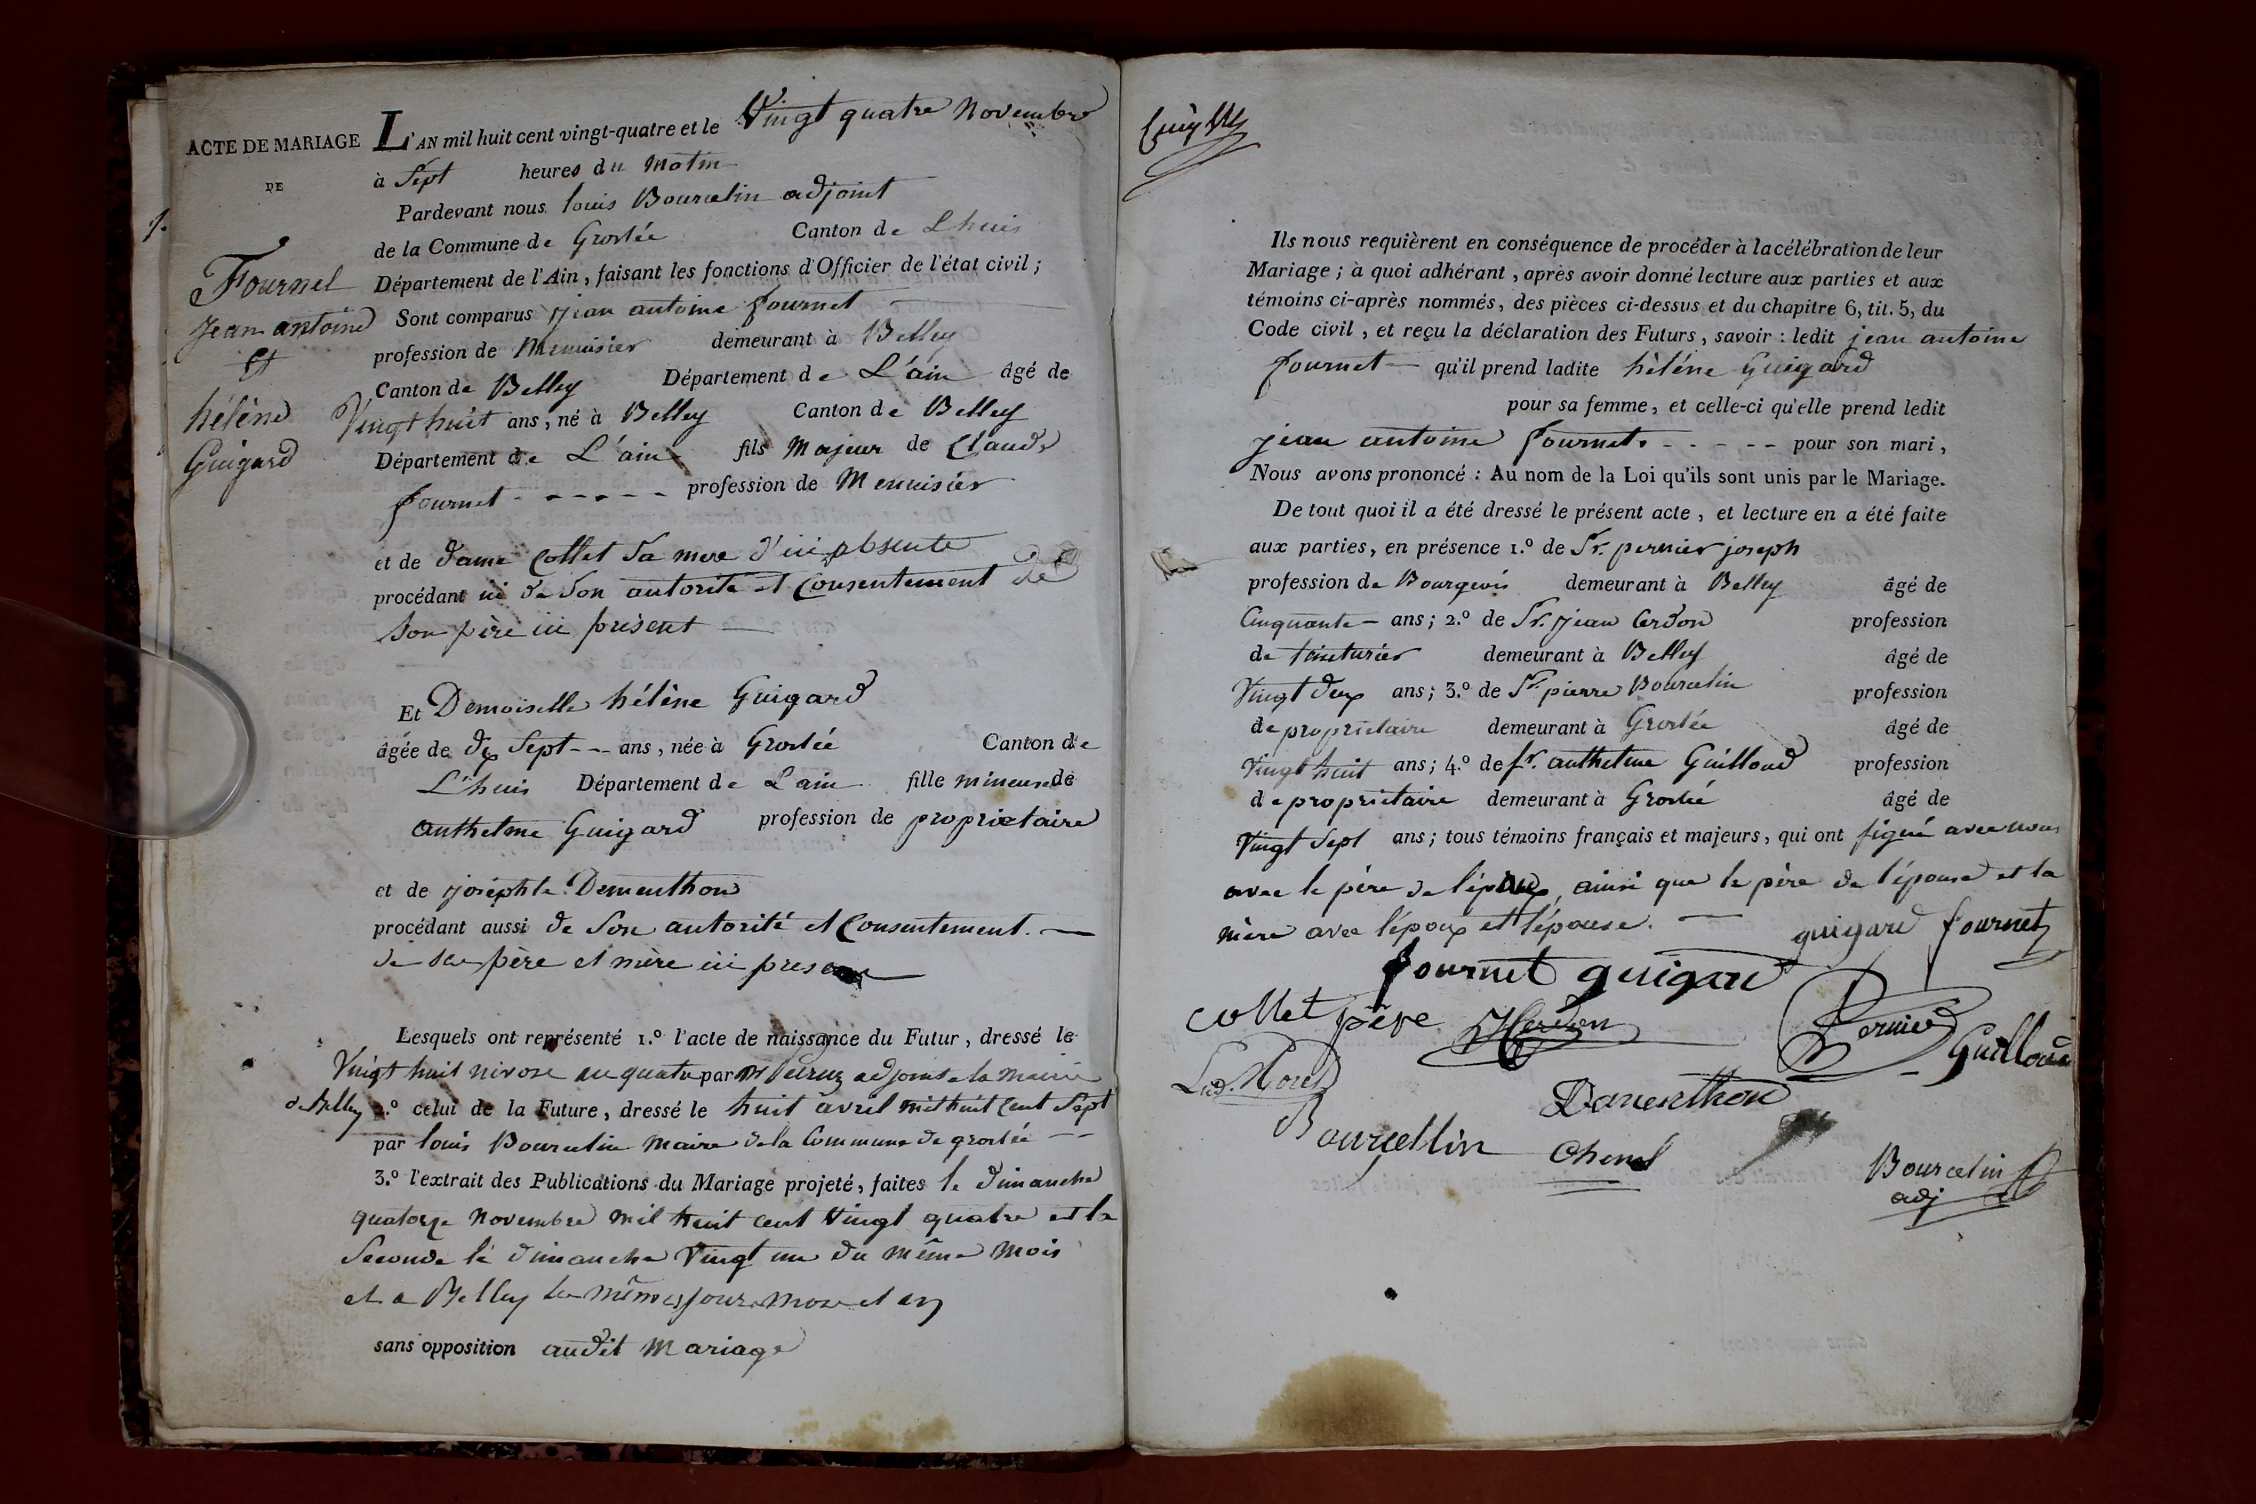 ACTE DE MARIAGE
DE
Fournet
Jean antoine
Et
hélène
Guigard
L'AN mil huit cent vingt-quatre et le Vingt quatre Novembre
à Sept heures du Matin
Pardevant nous louis Bourcelin adjoint
de la Commune de Groslée Canton de Lhuis
Département de l'Ain, faisant les fonctions d'Officier de l'état civil;
Sont comparus jean antoine fournet
profession de Menuisier demeurant à Belley
Canton de Belley Département de L'ain âgé de
Vingt huit ans, né à Belley Canton de Belley
Département de L'ain fils Majeur de Claude
fournet - - - - - profession de Menuisier
et de dame Collet Sa mere d'ici absente
procédant ici de Son autorité et Consentement de
Son père ici présent
Et Demoiselle hélène Guigard
âgée de dix Sept - - ans, née à Groslée Canton de
L'huis Département de Lain fille mineure de
anthelme Guigard profession de proprietaire
et de josephte Dementhon
procédant aussi de Son autorité et Consentement.
de ses père et mère ici
Lesquels ont représenté 1.º l'acte de naissance du Futur, dressé le
Vingt huit nivose an quatre par adjoint a la Mairie
de Belley 2.º celui de la Future, dressé le huit avril mil huit Cent Sept
par louis Bourcelin Maire de la Commune de groslée
3.º l'extrait des Publications du Mariage projeté, faites le dimanche
quatorze Novembre mil huit cent Vingt quatre et la
Seconde le dimanche Vingt un du même Mois
et a Belley les mêmes jour mois et an
sans opposition audit Mariage
Ils nous requièrent en conséquence de procéder à la célébration de leur
Mariage; à quoi adhérant, après avoir donné lecture aux parties et aux
témoins ci-après nommés, des pièces ci-dessus et du chapitre 6, tit. 5, du
Code civil, et reçu la déclaration des Futurs, savoir: ledit jean antoine
fournet qu'il prend ladite hélène Guigard
pour sa femme, et celle-ci qu'elle prend ledit
jean antoine fournet. - - - - - pour son mari,
Nous avons prononcé: Au nom de la Loi qu'ils sont unis par le Mariage.
De tout quoi il a été dressé le présent acte, et lecture en a été faite
aux parties, en présence 1.º de Sr. pernier joseph
profession de Bourgeois demeurant à Belley âgé de
Cinquante ans; 2.º de Sr. jean Cerdon profession
de teinturier demeurant à Belley âgé de
Vingt deux ans; 3.º de Sr. pierre Bourcelin profession
de proprietaire demeurant à Groslée âgé de
Vingt huit ans; 4.º de Sr. anthelme Guilloud profession
de proprietaire demeurant à Groslée âgé de
Vingt Sept ans; tous témoins français et majeurs, qui ont signé avec nous
avec le père de l'époux, ainsi que le père de l'épouse et la
mère avec l'époux et l'épouse.
guigard fournet
fournet guigard
collet père Cerdon Pernier
Guilloud
Dementhon
Bourcellin
Bourcelin
adj